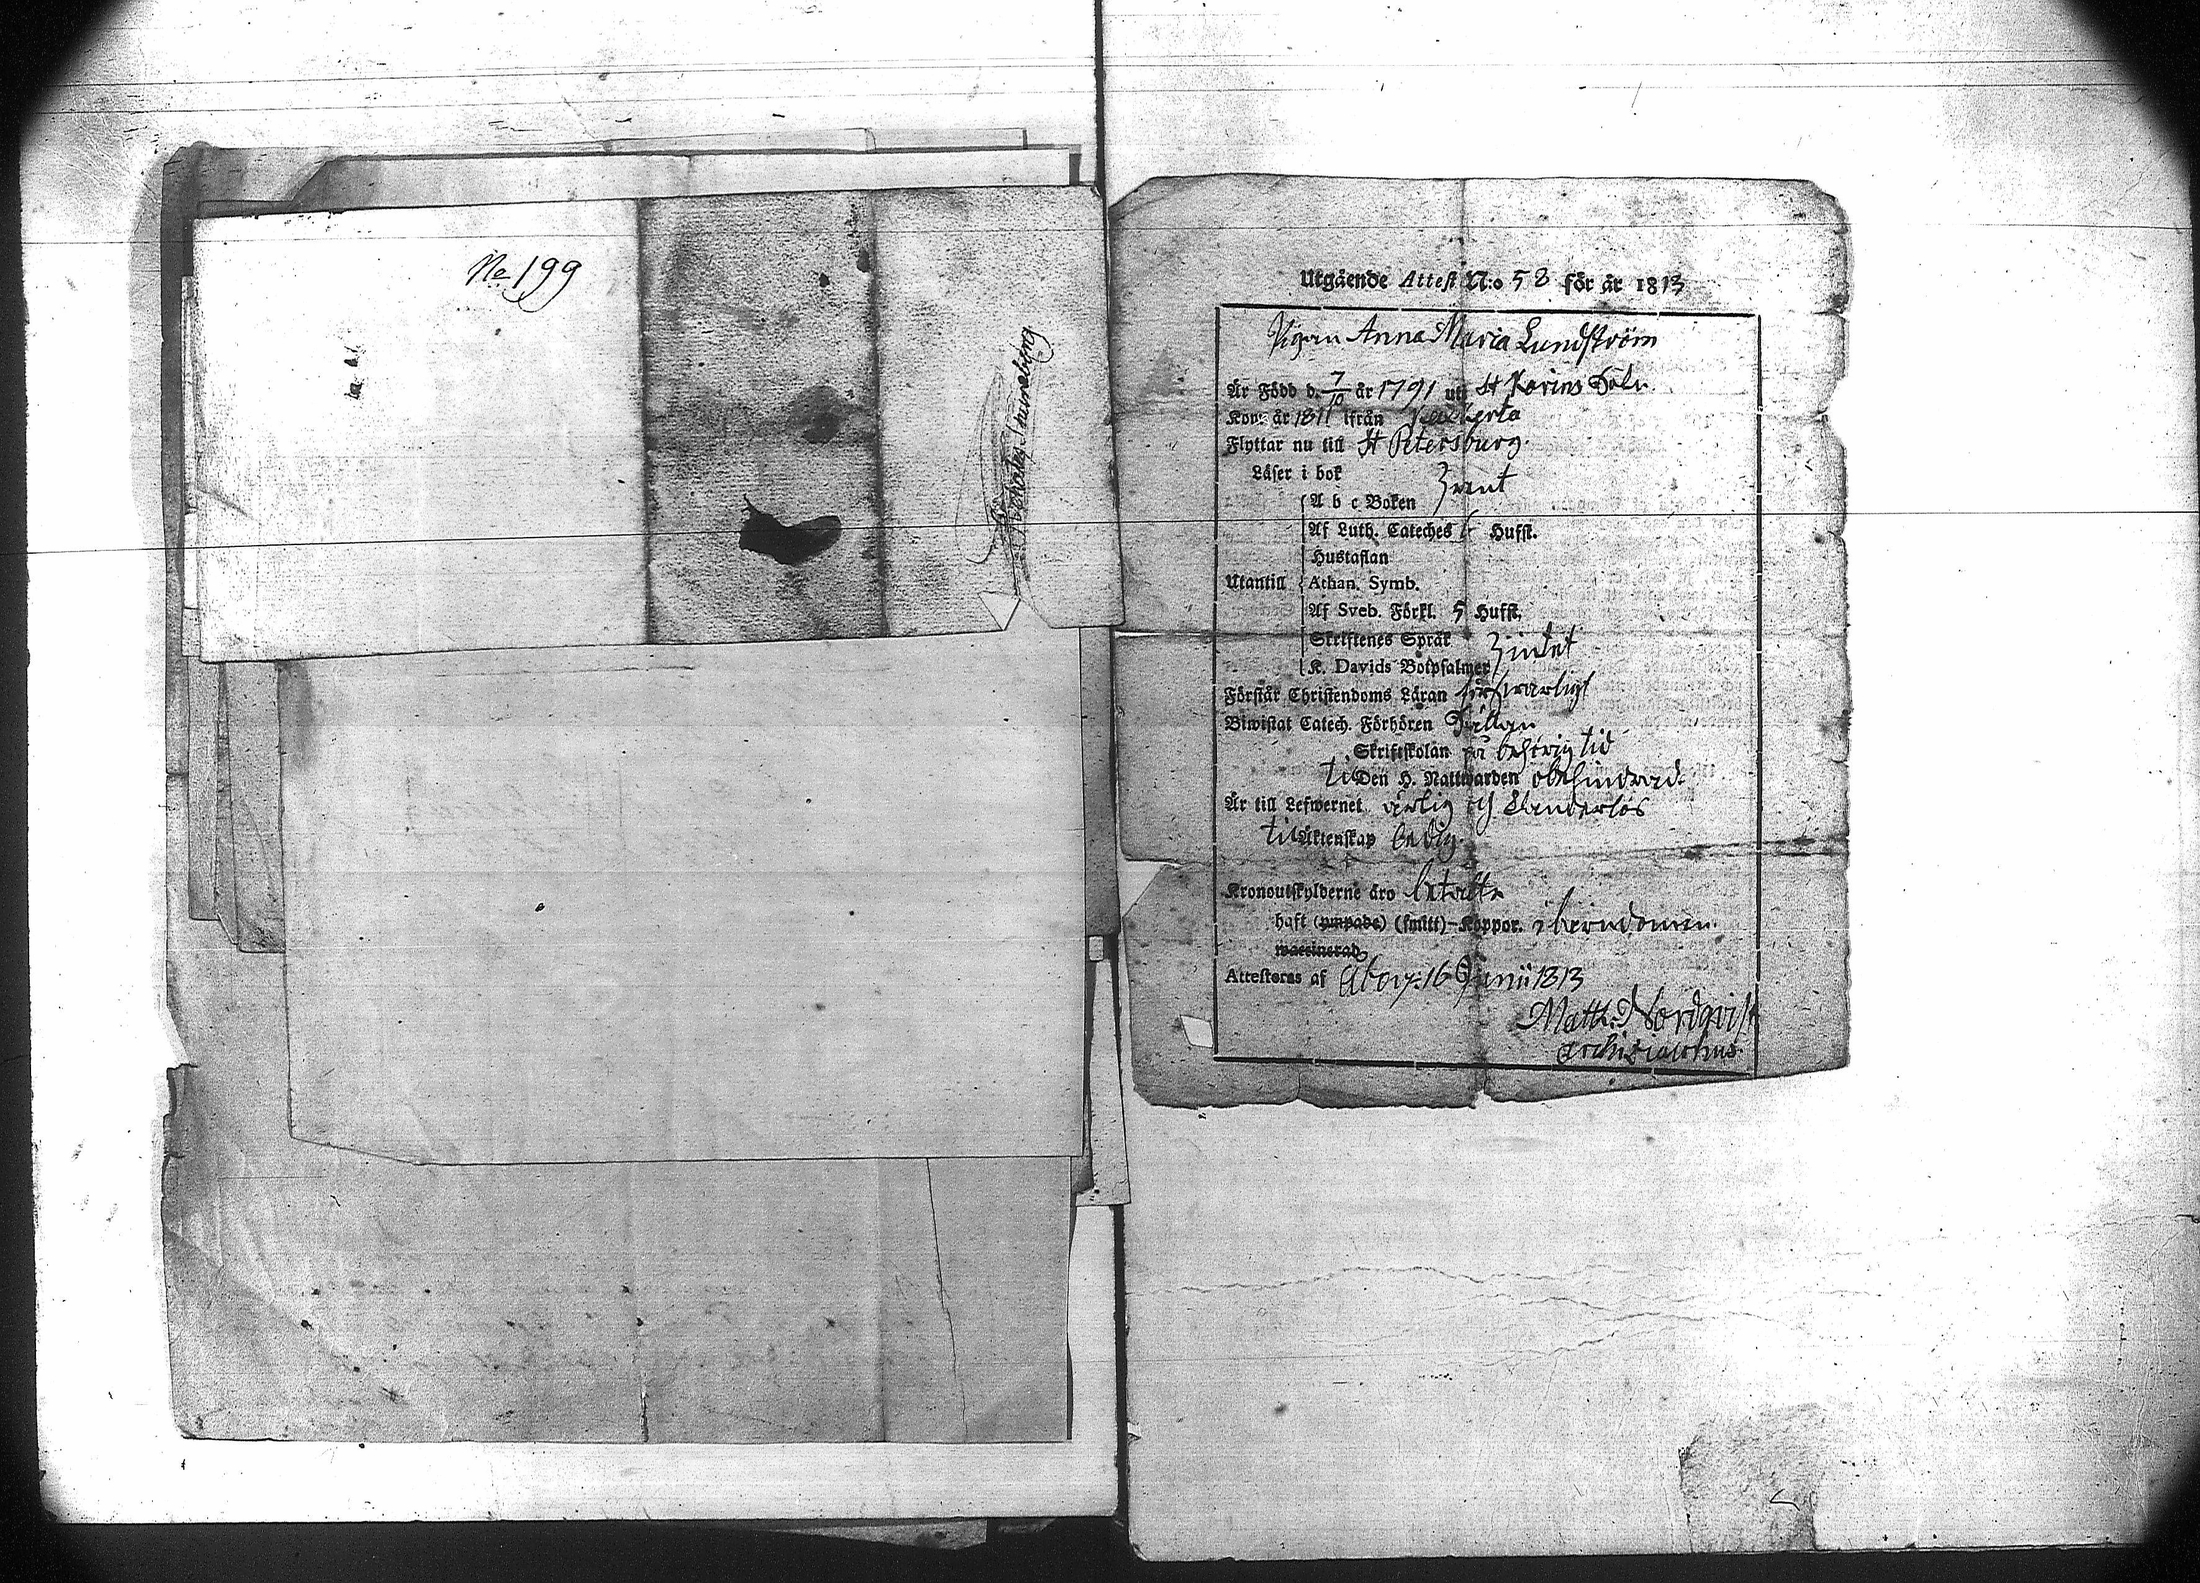 No 199
Utgående Attest N:o 58 för år 1813
Pigan Anna Maria Lundström
Är Född d. 7/10 år 1791 uti St Karins Sokn.
Kom: år 1811 ifrån
Flyttar nu till St Petersburg.
Läser i bok rent
A b c Boken
Af Luth. Cateches 6 Hufst.
Hustaflan
Utantill Athan. Symb.
Af Sveb. Förkl. 5 Hufst.
Skriftenes Språk
K. Davids Botpsalmer intet
Förstår Christendoms Läran försvarligt
Biwistat Catech. Förhören Sällan
Skriftskolan på behörig tid
till Den H. Nattwarden obehindrad.
Är till Lefwernet ärlig och klanderlös
till Äktenskap ledig.
Kronoutskylderne äro betalte
haft (ympade) (smitt)-Koppor. i barndomen.
waccinerad
Attesteras af Åbo 16 Junii 1813
Matth. Nordqvist
Archidiaconus